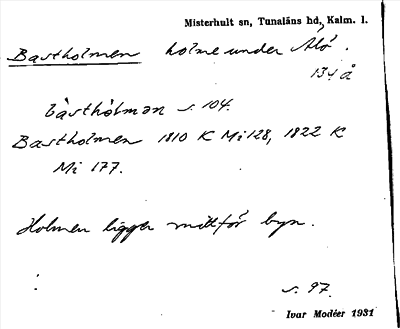 Misterhult sn, Tunaläns hd, Kalm. l.
Bastholmen holme under Älö.
134 å
bàsthòlmən s. 104.
Bastholmen 1810 K Mi 128, 1822 K
Mi 177.
Holmen ligger mittför byn.
s. 97.
Ivar Modéer 1931